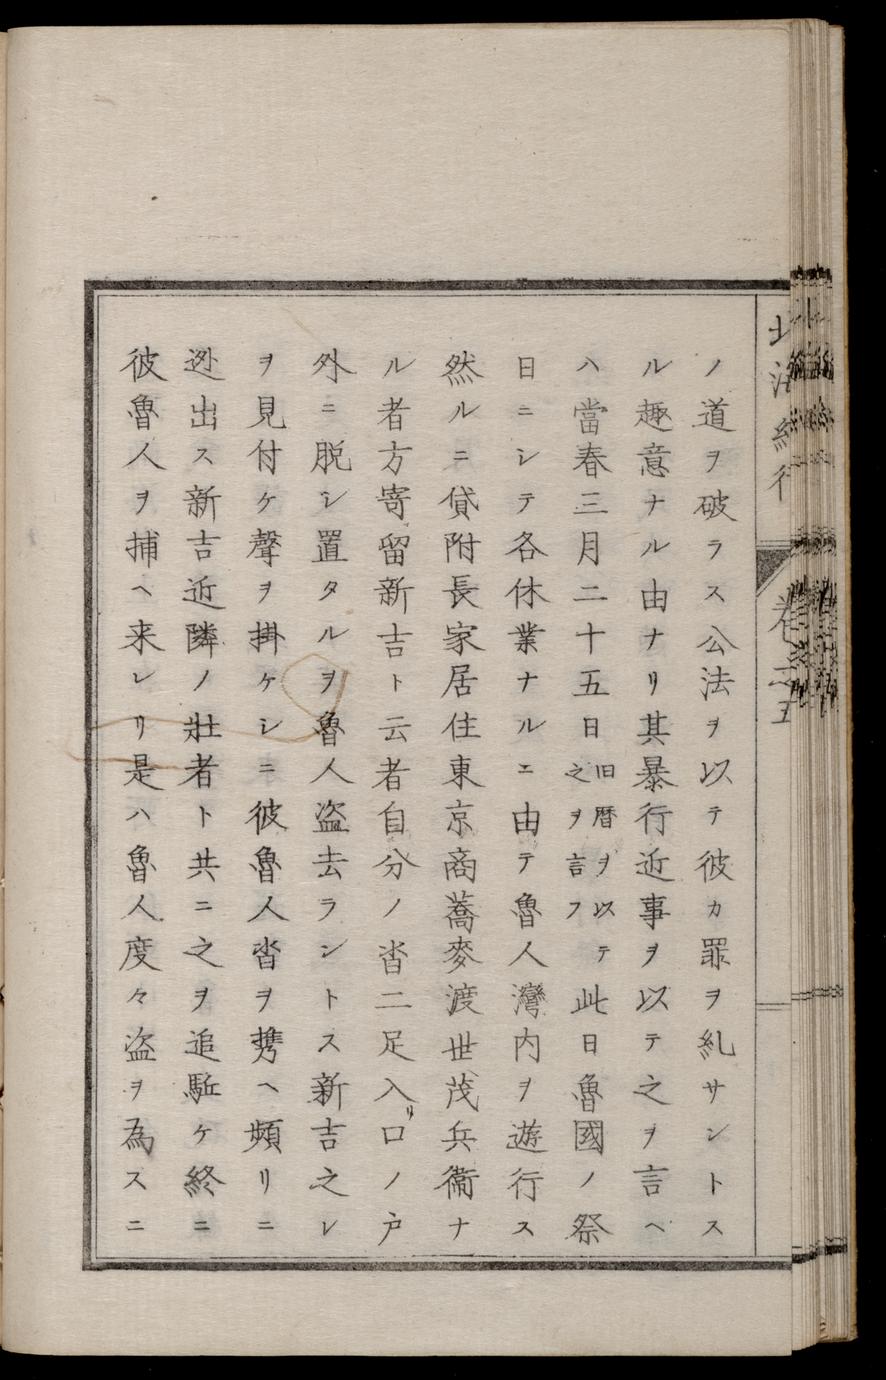 ノ道ヲ破ラス公法ヲ以テ彼カ罪ヲ糺サントス
ル趣意ナル由ナリ其暴行近事ヲ以テ之ヲ言ヘ
ハ當春三月二十五日旧暦ヲ以テ之ヲ言フ此日魯國ノ祭
日ニシテ各休業ナルエ由テ魯人灣内ヲ遊行ス
然ルニ貸附長家居住東京商蕎麥渡世茂兵衞ナ
ル者方寄留新吉ト云者自分ノ沓二足入リ口ノ戸
外ニ脱シ置タルヲ魯人盗去ラントス新吉之レ
ヲ見付ケ聲ヲ掛ケシニ彼魯人沓ヲ携ヘ頻リニ
迯出ス新吉近隣ノ壮者ト共ニ之ヲ追駈ケ終ニ
彼魯人ヲ捕ヘ来レリ是ハ魯人度々盗ヲ為スニ